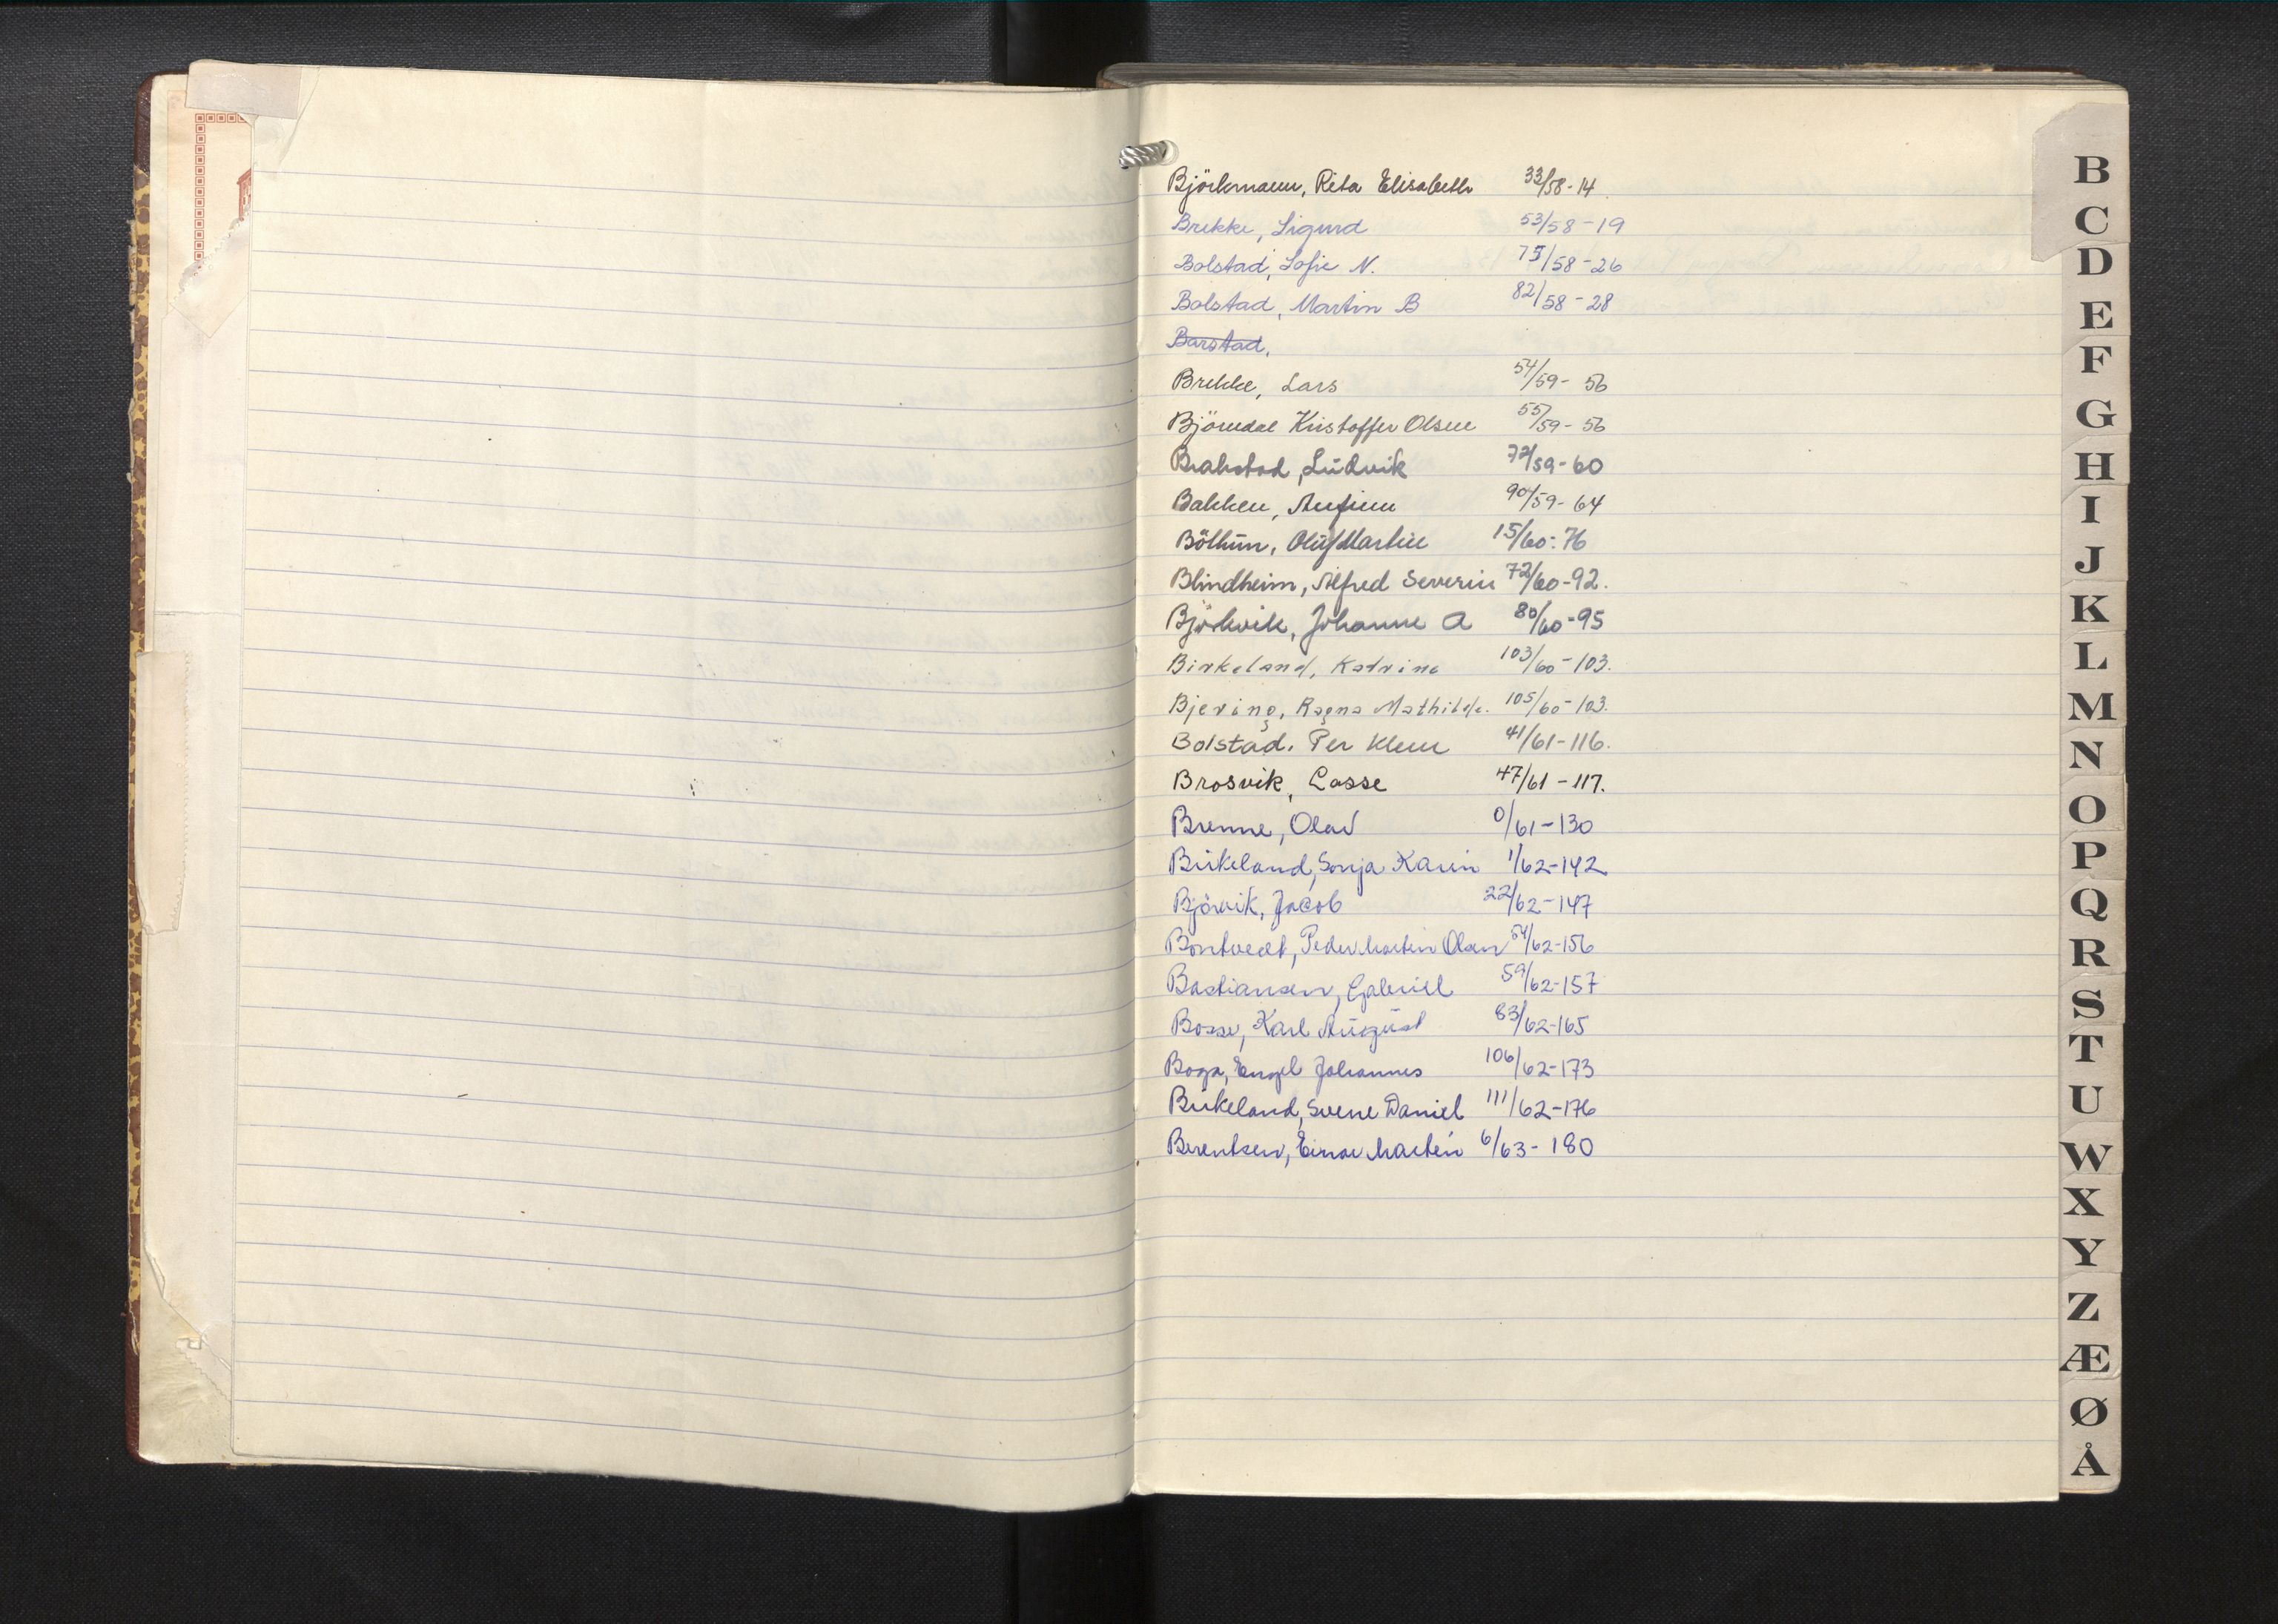 Björkmann, Rita Elisabeth 33/58-14
Brekke, Sigurd 53/58-19
Bolstad, Sofie N. 75/58-26
Bolstad, Martin B 82/58-28
Barstad,
Brekke, Lars 54/59-56
Björndal Kristoffer Olsen 55/59-56
Brakstad, Ludvik 72/59-60
Bakken, Anfinn 90/59-64
Böthun, Oluf Martin 15/60-76
Blindheim, Alfred Severin 72/60-92.
Björkvik, Johanne A 80/60-95
Birkeland, Katrine 103/60-103.
Bjering, Ragna Mathilde. 105/60-103.
Bolstad. Per Klem 41/61-116.
Brosvik, Lasse 47/61-117.
Brenne, Olav 0/61-130
Birkeland, Sonja Karin 1/62-142
Björvik, Jacob 22/62-147
Bontveet, Peder Martin Olsen 54/62-156
Bastiansen, Gabriel 59/62-157
Bosse, Karl August 83/62-165
Boga, Engel Johannes 106/62-173
Birkeland, Svene Daniel 111/62-176
Berentsen, Einar Martin 6/63-180
B
C
D
E
F
G
H
I
J
K
L
M
N
O
P
Q
R
S
T
U
W
X
Y
Z
Æ
Ø
Å